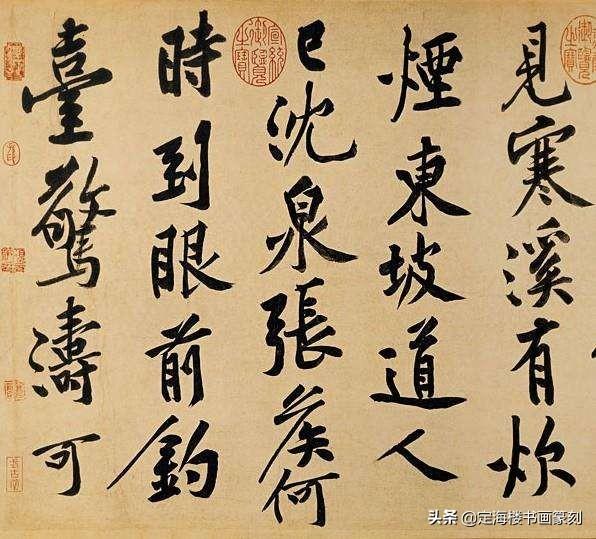 見寒溪有炊
煙東坡道人
已沈泉張侯何
時到眼前釣
臺驚濤可
宣統御覽之寶
头条 @定海楼书画篆刻